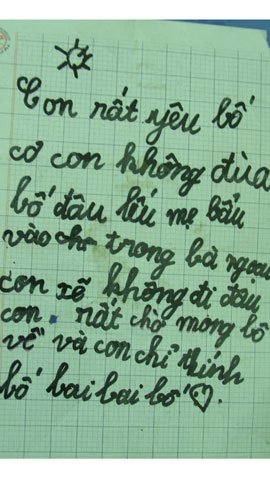 Con rất yêu bố
cơ con không đùa
bố đâu lếu mẹ bẩu
vào cho trong bà ngoại
con xẽ không đi đâu
con rất chờ mong bố
về và con chỉ thính
bố bai bai bố